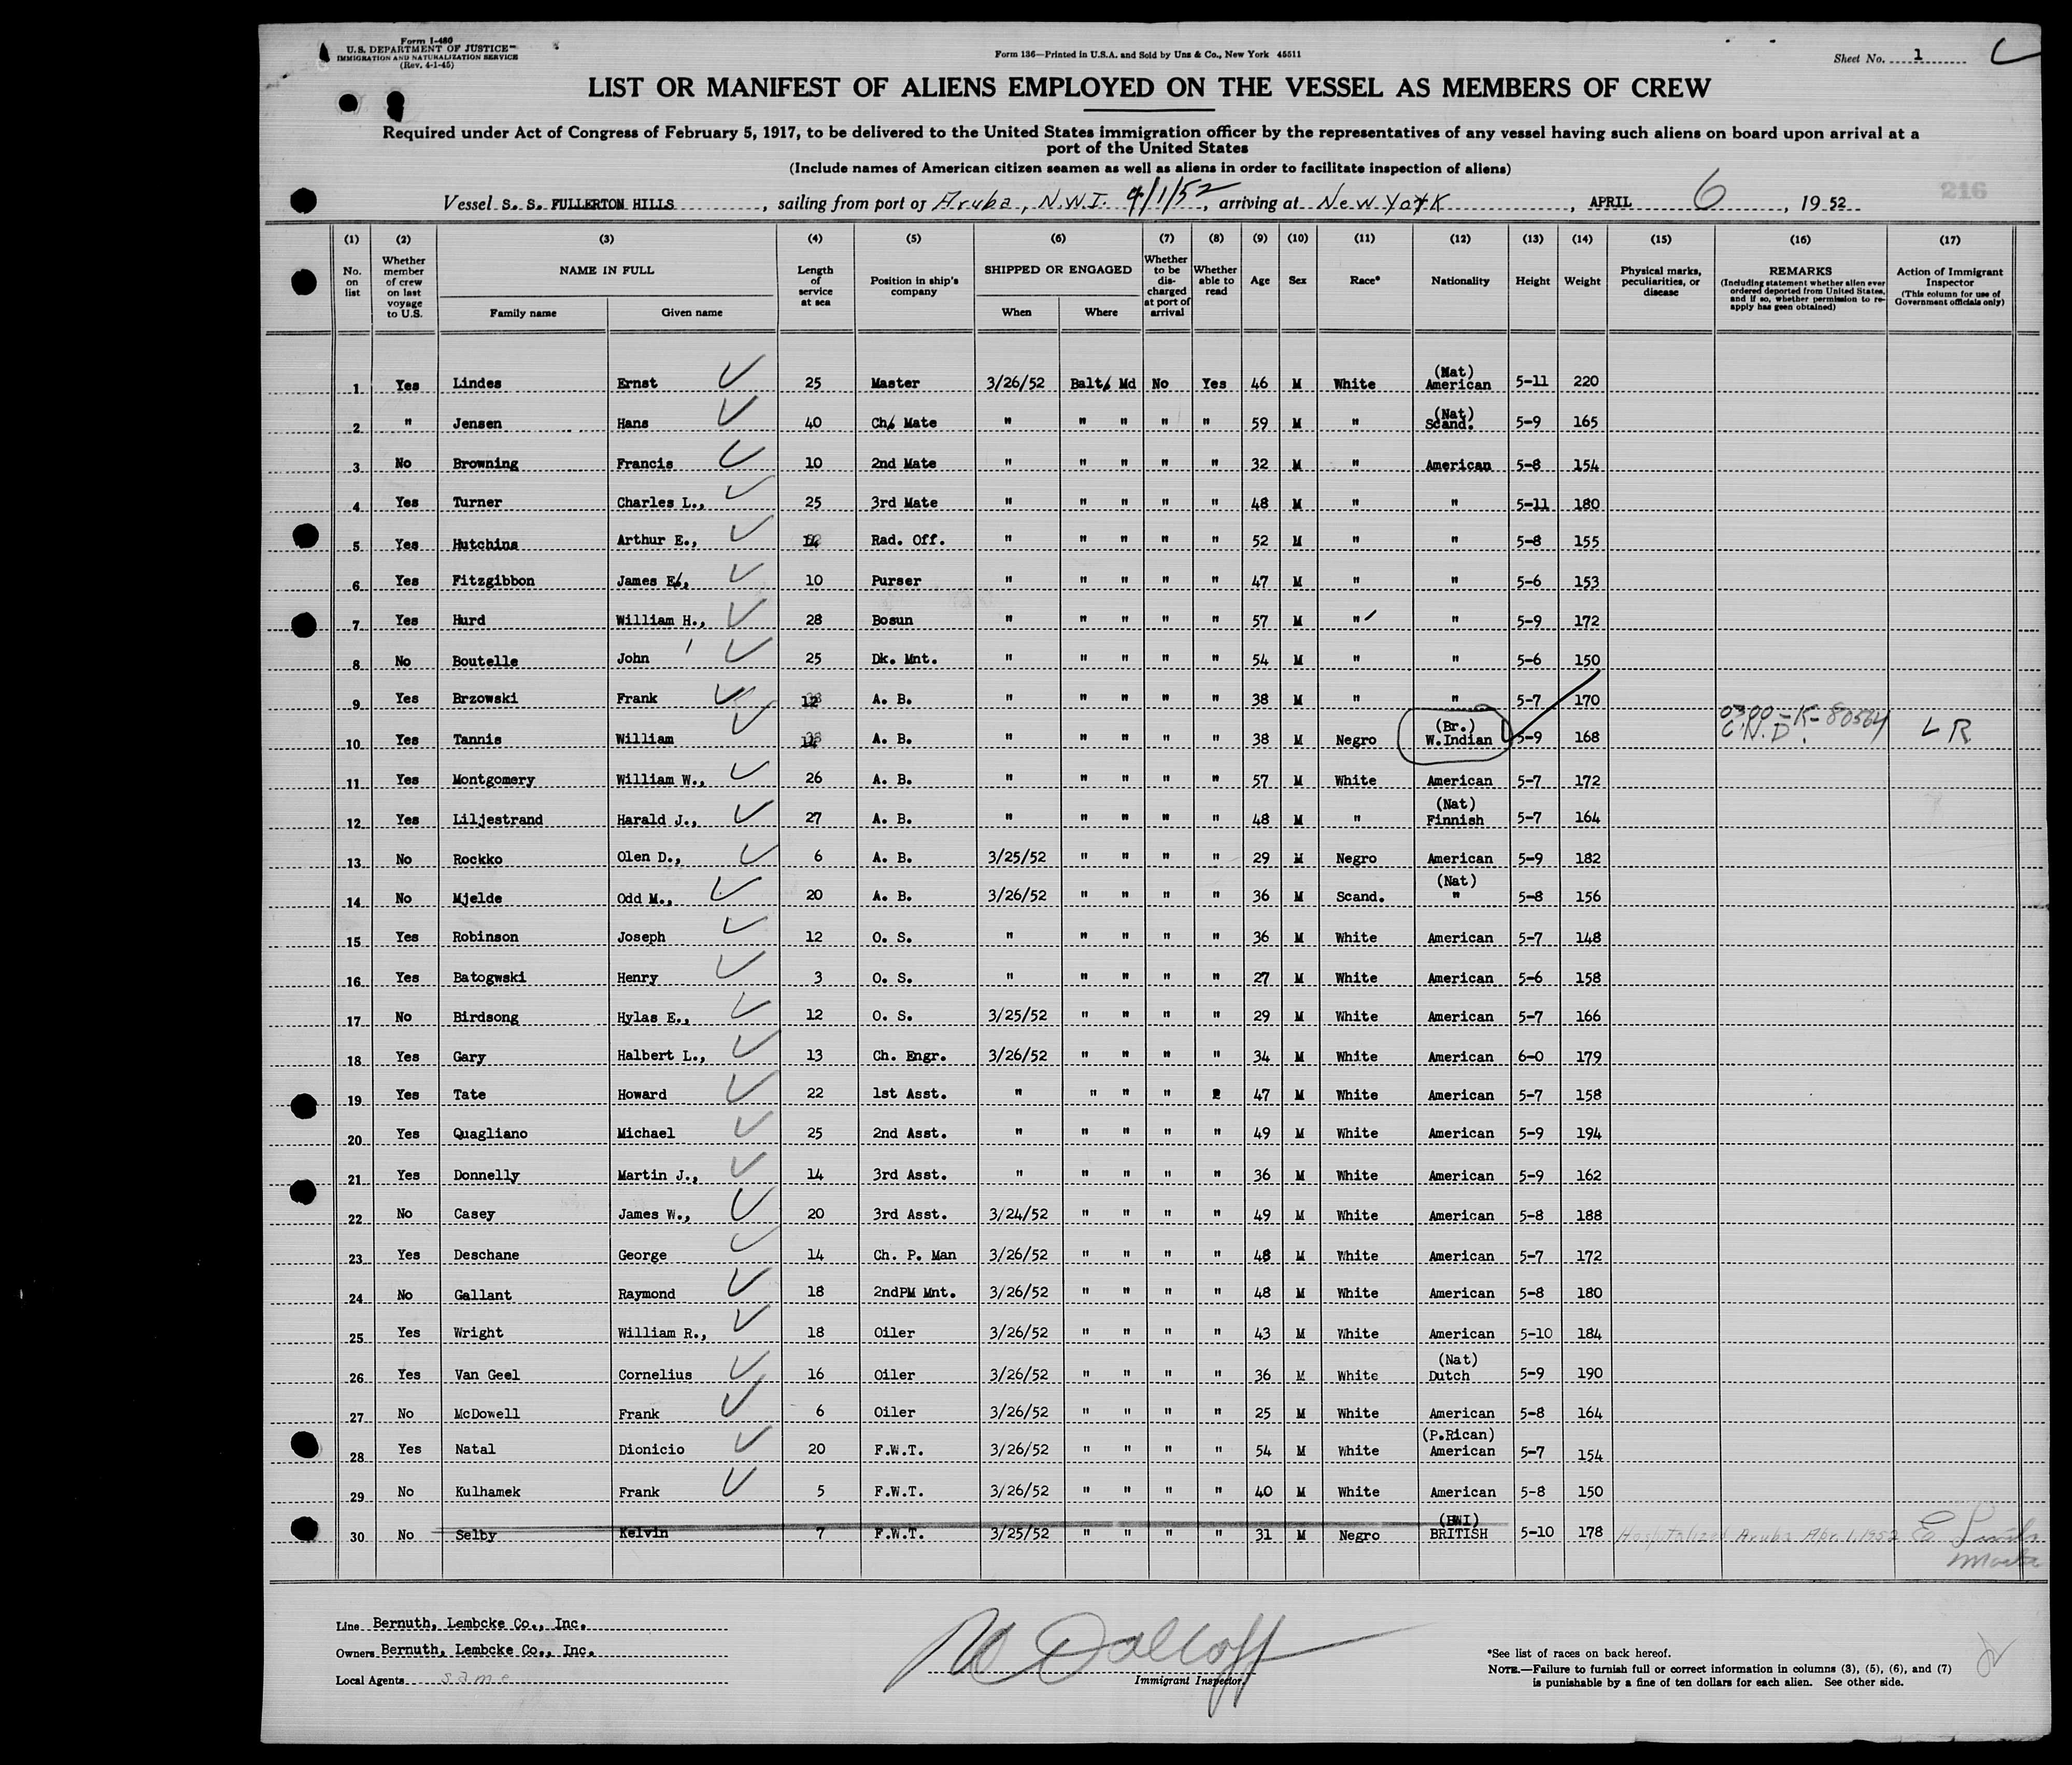 Form I-480
U.S. DEPARTMENT OF JUSTICE
IMMIGRATION AND NATURALIZATION SERVICE
(Rev. 4-1-45)
Form 136—Printed in U.S.A. and Sold by Unz & Co., New York 45511
Sheet No. 1
LIST OR MANIFEST OF ALIENS EMPLOYED ON THE VESSEL AS MEMBERS OF CREW
Required under Act of Congress of February 5, 1917, to be delivered to the United States immigration officer by the representatives of any vessel having such aliens on board upon arrival at a
port of the United States
(Include names of American citizen seamen as well as aliens in order to facilitate inspection of aliens)
216
Vessel S. S. FULLERTON HILLS, sailing from port of Aruba, N.W.I. 4/1/52, arriving at New York, APRIL 6, 1952
(1) (2) (3) (4) (5) (6) (7) (8) (9) (10) (11) (12) (13) (14) (15) (16) (17)
No. on list
Whether member of crew on last voyage to U.S.
NAME IN FULL
Family name Given name
Length of service at sea
Position in ship's company
SHIPPED OR ENGAGED
When Where
Whether to be discharged at port of arrival
Whether able to read
Age
Sex
Race*
Nationality
Height
Weight
Physical marks, peculiarities, or disease
REMARKS
(Including statement whether alien ever ordered deported from United States, and if so, whether permission to reapply has geen obtained)
Action of Immigrant Inspector
(This column for use of Government officials only)
1 Yes Lindes Ernst 25 Master 3/26/52 Balt. Md No Yes 46 M White (Nat) American 5-11 220
2 " Jensen Hans 40 Ch. Mate " " " " " 59 M " (Nat) Scand. 5-9 165
3 No Browning Francis 10 2nd Mate " " " " " 32 M " American 5-8 154
4 Yes Turner Charles L., 25 3rd Mate " " " " " 48 M " " 5-11 180
5 Yes Hutchins Arthur E., 14 Rad. Off. " " " " " 52 M " " 5-8 155
6 Yes Fitzgibbon James E., 10 Purser " " " " " 47 M " " 5-6 153
7 Yes Hurd William H., 28 Bosun " " " " " 57 M " " 5-9 172
8 No Boutelle John 25 Dk. Mnt. " " " " " 54 M " " 5-6 150
9 Yes Brzowski Frank 12 A. B. " " " " " 38 M " " 5-7 170
10 Yes Tannis William 14 A. B. " " " " " 38 M Negro (Br.) W.Indian 5-9 168 0300-K-80564 C.N.D. L R
11 Yes Montgomery William W., 26 A. B. " " " " " 57 M White American 5-7 172
12 Yes Liljestrand Harald J., 27 A. B. " " " " " 48 M " (Nat) Finnish 5-7 164
13 No Rockko Olen D., 6 A. B. 3/25/52 " " " " 29 M Negro American 5-9 182
14 No Mjelde Odd M., 20 A. B. 3/26/52 " " " " 36 M Scand. (Nat) " 5-8 156
15 Yes Robinson Joseph 12 O. S. " " " " " 36 M White American 5-7 148
16 Yes Batogwski Henry 3 O. S. " " " " " 27 M White American 5-6 158
17 No Birdsong Hylas E., 12 O. S. 3/25/52 " " " " 29 M White American 5-7 166
18 Yes Gary Halbert L., 13 Ch. Engr. 3/26/52 " " " " 34 M White American 6-0 179
19 Yes Tate Howard 22 1st Asst. " " " " " 47 M White American 5-7 158
20 Yes Quagliano Michael 25 2nd Asst. " " " " " 49 M White American 5-9 194
21 Yes Donnelly Martin J., 14 3rd Asst. " " " " " 36 M White American 5-9 162
22 No Casey James W., 20 3rd Asst. 3/24/52 " " " " 49 M White American 5-8 188
23 Yes Deschane George 14 Ch. P. Man 3/26/52 " " " " 48 M White American 5-7 172
24 No Gallant Raymond 18 2ndPM Mnt. 3/26/52 " " " " 48 M White American 5-8 180
25 Yes Wright William R., 18 Oiler 3/26/52 " " " " 43 M White American 5-10 184
26 Yes Van Geel Cornelius 16 Oiler 3/26/52 " " " " 36 M White (Nat) Dutch 5-9 190
27 No McDowell Frank 6 Oiler 3/26/52 " " " " 25 M White American 5-8 164
28 Yes Natal Dionicio 20 F.W.T. 3/26/52 " " " " 54 M White (P.Rican) American 5-7 154
29 No Kulhamek Frank 5 F.W.T. 3/26/52 " " " " 40 M White American 5-8 150
30 No Selby Kelvin 7 F.W.T. 3/25/52 " " " " 31 M Negro (BWI) BRITISH 5-10 178 Hospitalized Aruba Apr. 1, 1952
Line Bernuth, Lembcke Co., Inc.
Owners Bernuth, Lembcke Co., Inc.
Local Agents same
Immigrant Inspector
*See list of races on back hereof.
NOTE.—Failure to furnish full or correct information in columns (3), (5), (6), and (7)
is punishable by a fine of ten dollars for each alien. See other side.